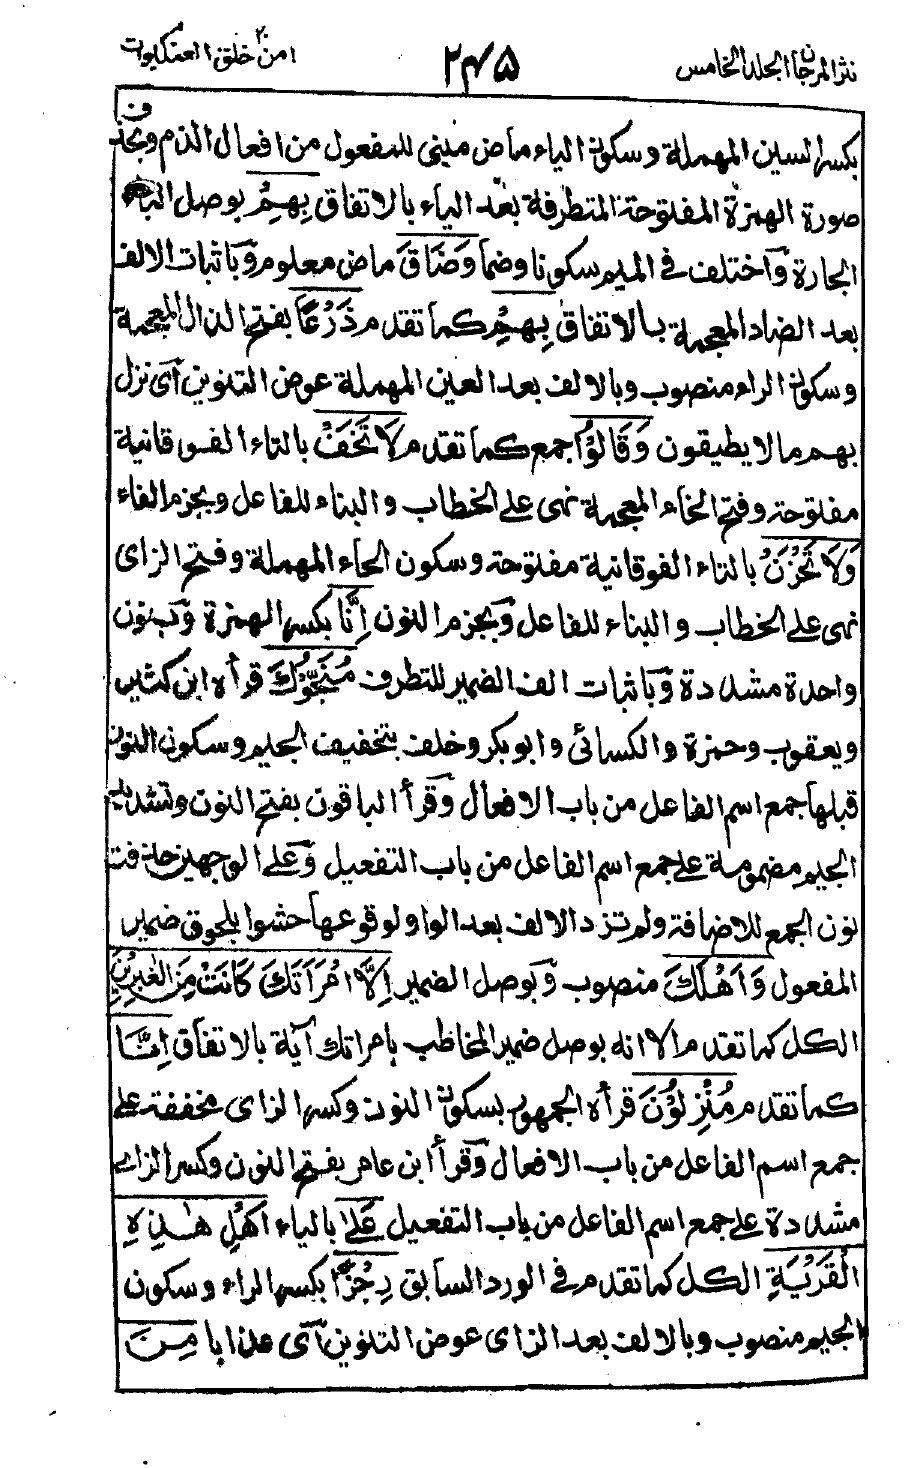 نثر المرجان الجلد الخامس
٢٤٥
امن خلق ٢٠ العنكبوت
بكسر السين المهملة وسكون الياء ماض مبني للمفعول من افعال الذم وبحذف
صورة الهمزة المفتوحة المتطرفة بعد الياء بالاتفاق بِهِمْ بوصل الباء
الجارة وآختلف في الميم سكونا وضما وَضَاقَ ماض معلوم وبآثبات الالف
بعد الضاد المعجمة بالاتفاق بِهِمْ كما تقدم ذَرْعًا بفتح الذال المعجمة
وسكون الراء منصوب وبالالف بعد العين المهملة عوض التنوين آى نزل
بهم ما لا يطيقون وَقَالُوْا جمع كما تقدم لَا تَخَفْ بالتاء الفوقانية
مفتوحة وفتح الخاء المعجمة نهى على الخطاب والبناء للفاعل وبجزم الفاء
وَلَا تَحْزَنْ بالتاء الفوقانية مفتوحة وسكون الحاء المهملة وفتح الزاى
نهى على الخطاب والبناء للفاعل وبجزم النون اِنَّا بكسر الهمزة وبنون
واحدة مشددة وبآثبات الف الضمير للتطرف مُنَجُّوْكَ قرأه ابن كثير
ويعقوب وحمزة والكسائى وابو بكر وخلف بتخفيف الجيم وسكون النون
قبلها جمع اسم الفاعل من باب الافعال وقرأ الباقون بفتح النون وتشديد
الجيم مضمومة على جمع اسم الفاعل من باب التفعيل وعلى الوجهين حذفت
نون الجمع للاضافة ولم تزد الالف بعد الواو لوقوعها حشوا بلحوق ضمير
المفعول وَاَهْلَكَ منصوب وبوصل الضمير اِلَّا امْرَاَتَكَ كَانَتْ مِنَ الْغٰبِرِيْنَ
الكل كما تقدم الا انه بوصل ضمير المخاطب بامراتك آية بالاتفاق اِنَّا
كما تقدم مُنْزِلُوْنَ قرأه الجمهور بسكون النون وكسر الزاى مخففة على
جمع اسم الفاعل من باب الافعال وقرأ ابن عامر بفتح النون وكسر الزاى
مشددة على جمع اسم الفاعل من باب التفعيل عَلٰى بالياء اَهْلِ هٰذِهِ
الْقَرْيَةِ الكل كما تقدم في الورد السابق رِجْزًا بكسر الراء وسكون
الجيم منصوب وبالالف بعد الزاى عوض التنوين آى عذابا مِنَ